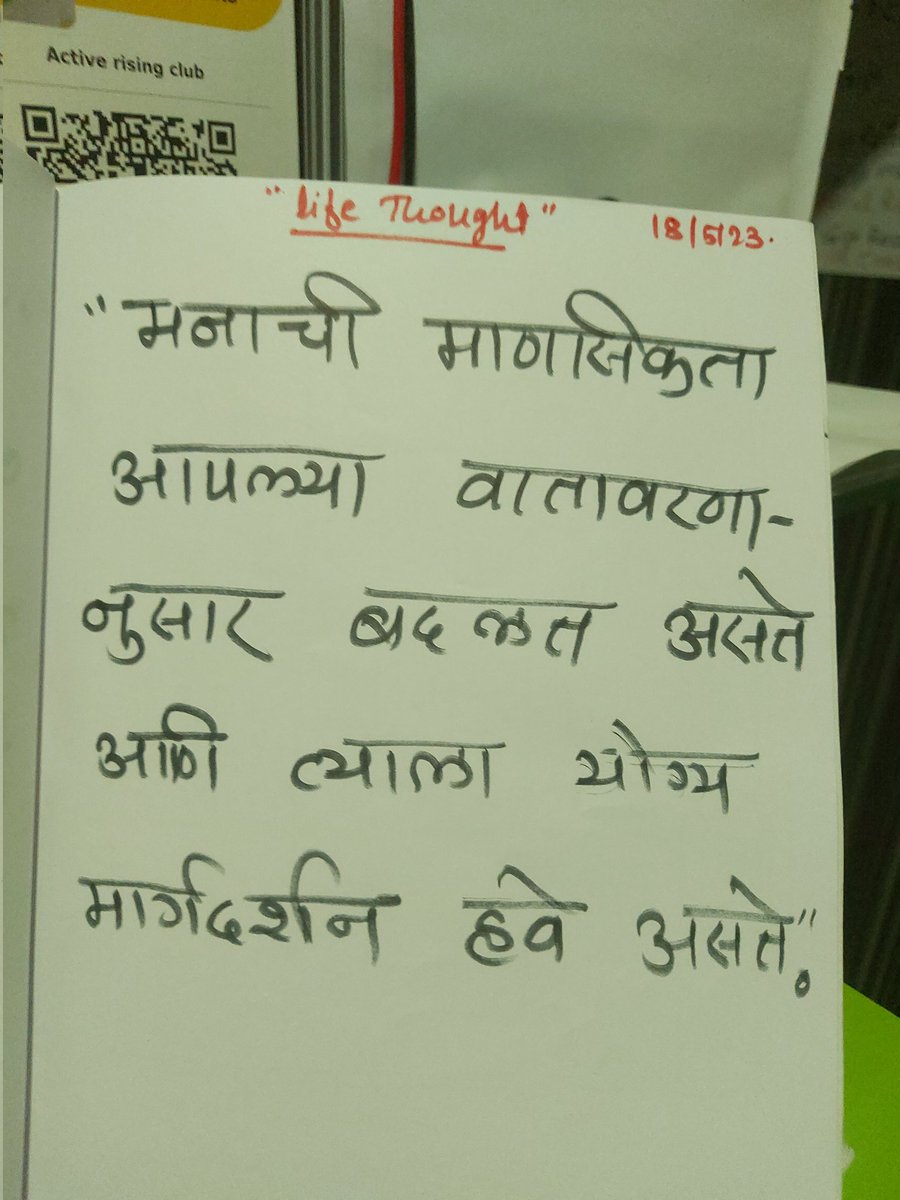 Active rising club
"Life Thought"
18/5/23.
"मनाची माणसिकता
आपल्या वातावरणा-
नुसार बदलत असते
आणि त्याला योग्य
मार्गदर्शन हवे असते."